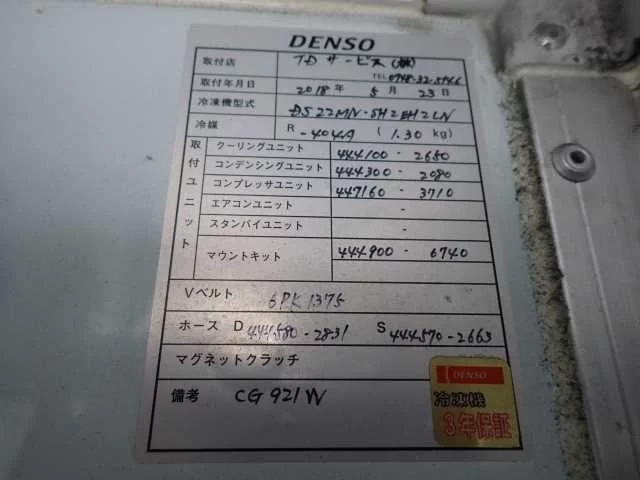 DENSO
取付店 TDサービス(株)
TEL 0748-32-5746
取付年月日 2018年 5月 23日
冷凍機型式 DS22MN-SH2EH2LN
冷媒 R-404A (1.30kg)
取付ユニット
クーリングユニット 444100 - 2680
コンデンシングユニット 444300 - 2080
コンプレッサユニット 447160 - 3710
エアコンユニット -
スタンバイユニット -
マウントキット 444900 - 6740
Vベルト 6PK1375
ホース D 444580-2831 S 444570-2663
マグネットクラッチ
備考 CG921W
DENSO
冷凍機
3年保証